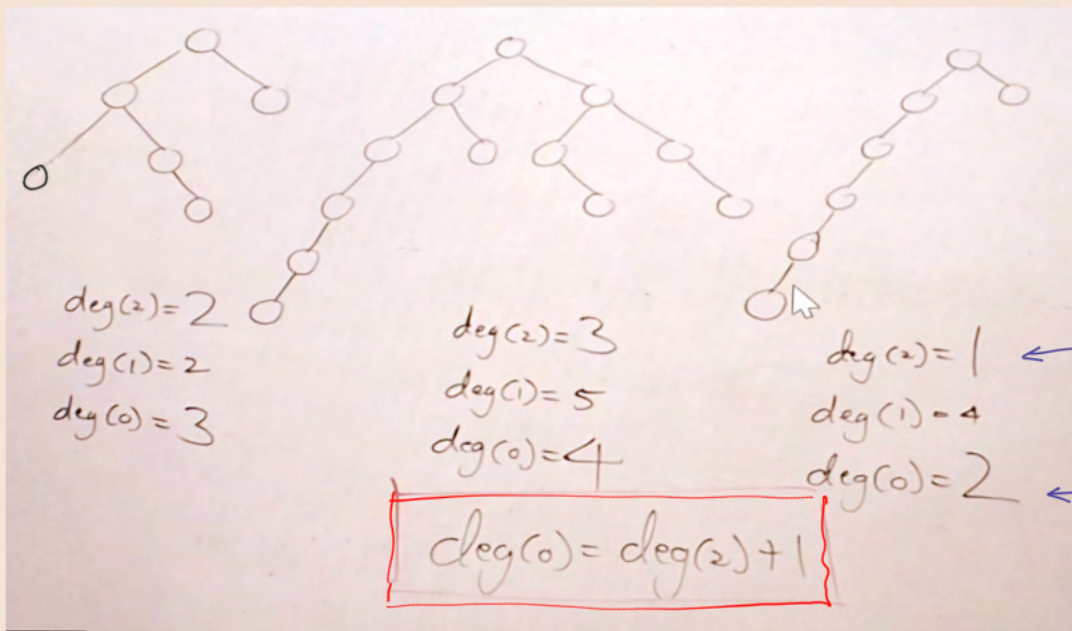 deg(2)=2
deg(1)=2
deg(0)=3
deg(2)=3
deg(1)=5
deg(0)=4
deg(2)=1
deg(1)=4
deg(0)=2
deg(0)=deg(2)+1